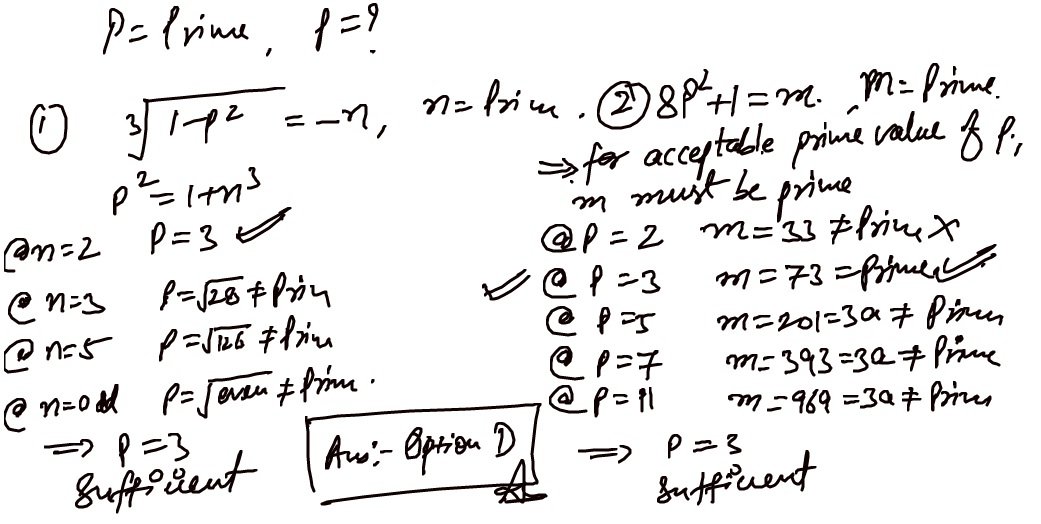 P = Prime, P = ?
① ∛(1-P²) = -n, n = Prim.
P² = 1+n³
@ n=2 P = 3 ✓
@ n=3 P = √28 ≠ Prim
@ n=5 P = √126 ≠ Prim
@ n=odd P = √even ≠ Prim.
⇒ P = 3
Sufficient
② 8P²+1 = m. , m = Prime.
⇒ for acceptable prime value of P,
m must be prime
@ P = 2 m = 33 ≠ Prime ×
✓ @ P = 3 m = 73 = Prime ✓
@ P = 5 m = 201 = 3a ≠ Prime
@ P = 7 m = 393 = 3a ≠ Prime
@ P = 11 m = 969 = 3a ≠ Prime
⇒ P = 3
Sufficient
Ans:- Option D